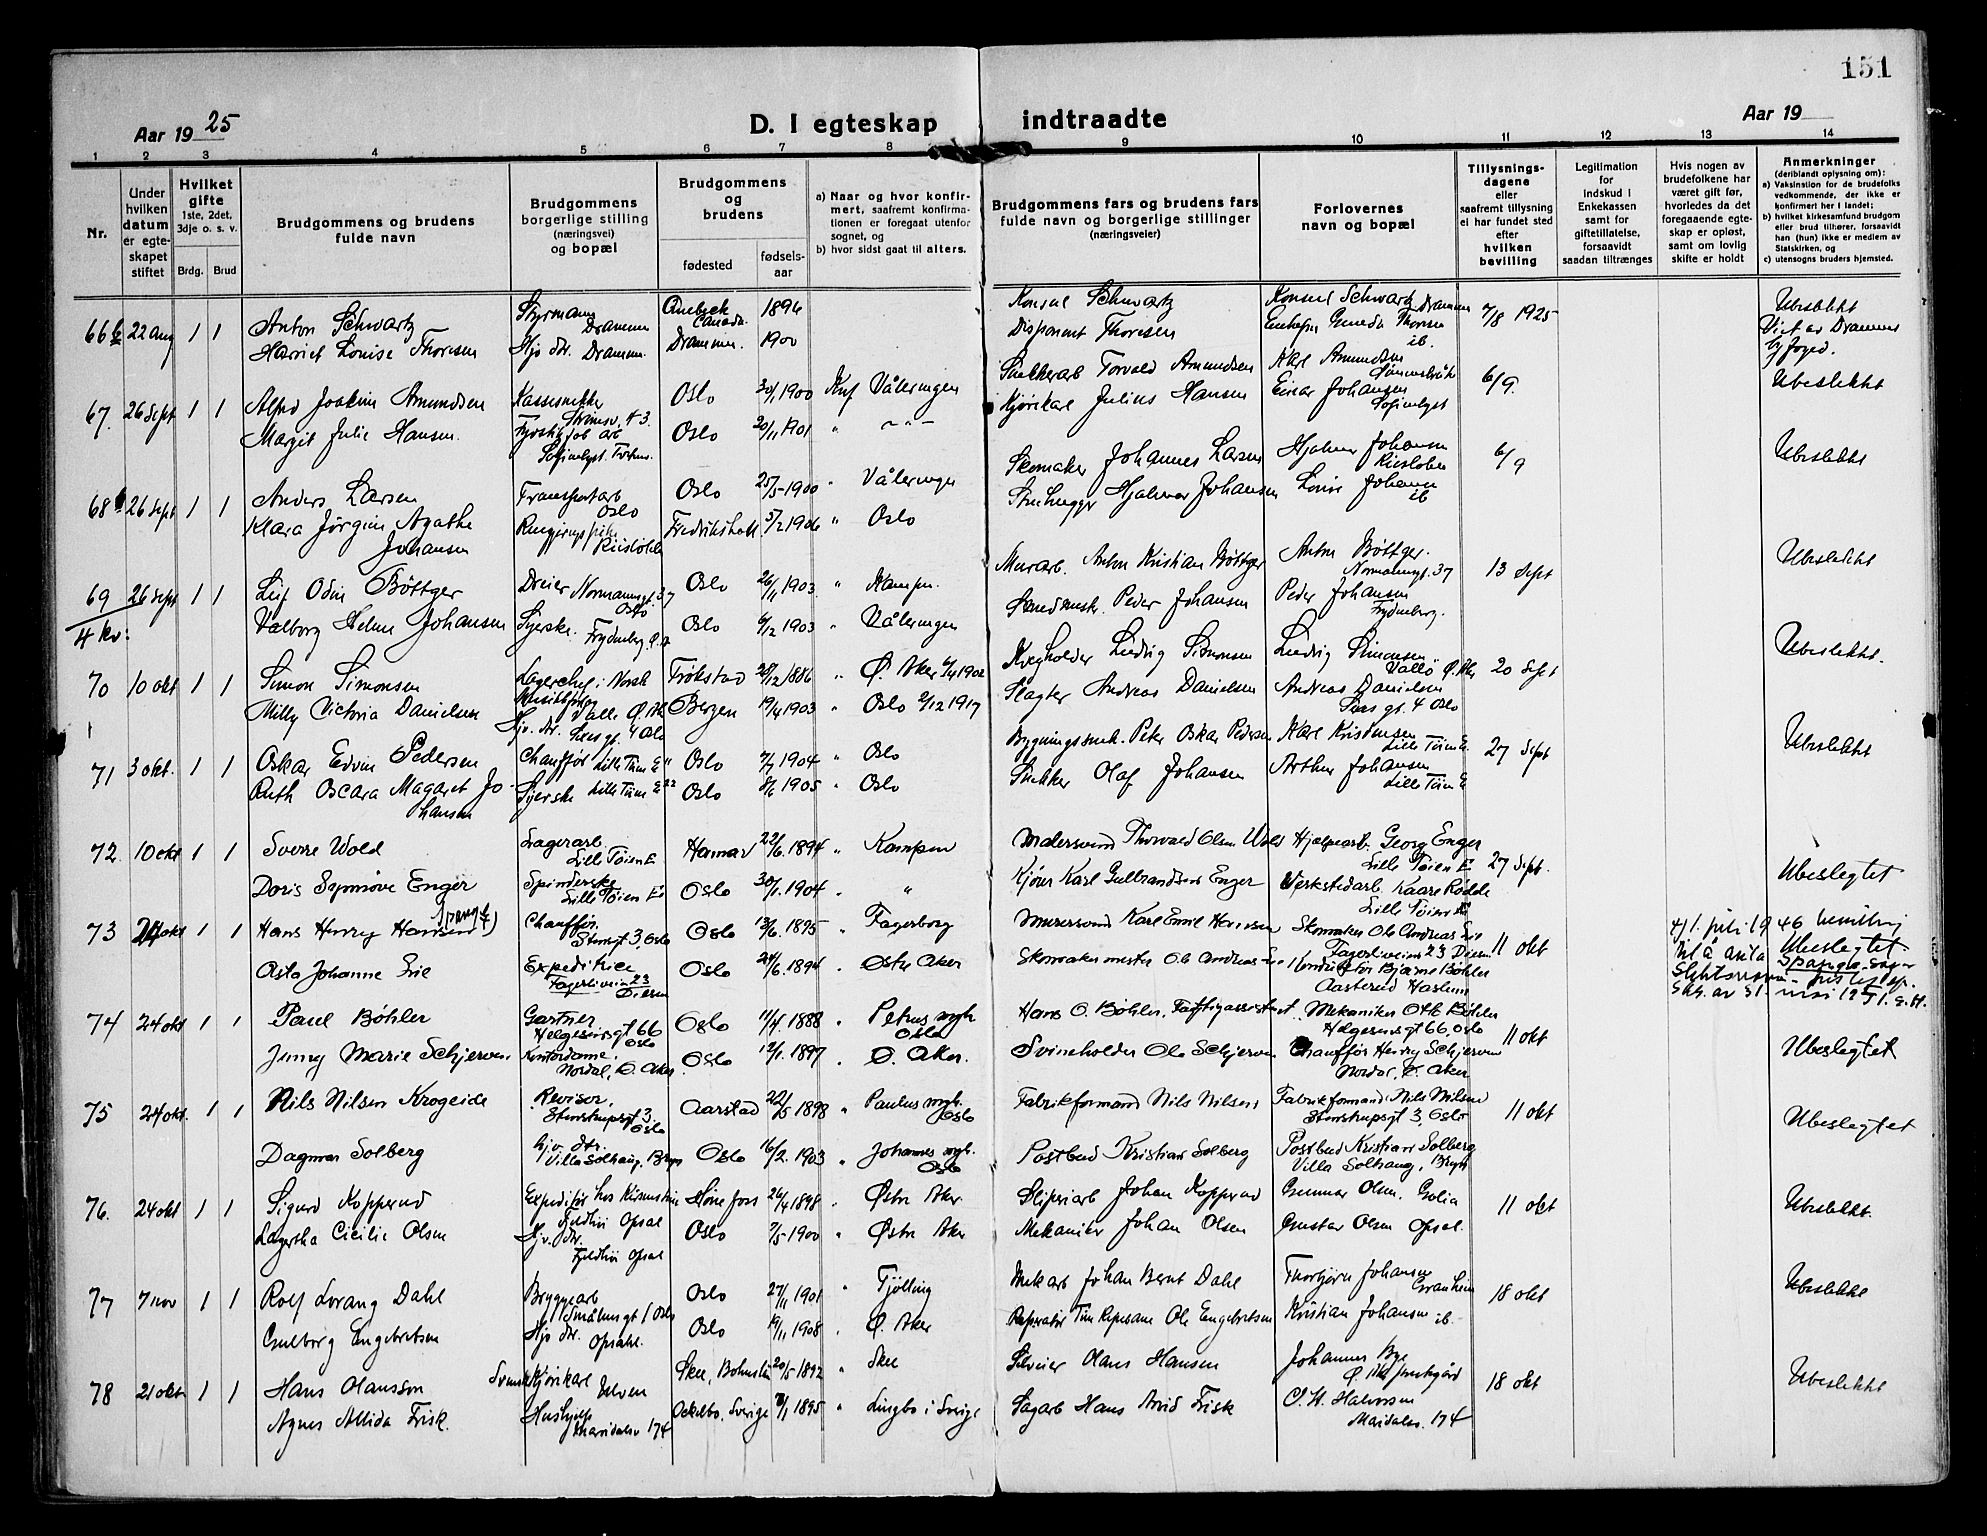 151
Aar 19 25
D. I egteskap indtraadte
Aar 19
1 2 3 4 5 6 7 8 9 10 11 12 13 14
Nr.
Under hvilken datum er egteskapet stiftet
Hvilket gifte
1ste, 2det, 3dje o. s. v.
Brdg. Brud
Brudgommens og brudens fulde navn
Brudgommens borgerlige stilling (næringsvei) og bopæl
Brudgommens og brudens
fødested
fødselsaar
a) Naar og hvor konfirmert, saafremt konfirmationen er foregaat utenfor sognet, og
b) hvor sidst gaat til alters.
Brudgommens fars og brudens fars fulde navn og borgerlige stillinger (næringsveier)
Forlovernes navn og bopæl
Tillysningsdagene eller saafremt tillysning ei har fundet sted efter hvilken bevilling
Legitimation for indskud i Enkekassen samt for giftetillatelse, forsaavidt saadan tiltrænges
Hvis nogen av brudefolkene har været gift før, hvorledes da det foregaaende egteskap er opløst, samt om lovlig skifte er holdt
Anmerkninger (deriblandt oplysning om):
a) Vaksinstion for de brudefolks vedkommende, der ikke er konfirmert her i landet;
b) hvilket kirkesamfund brudgom eller brud tilhører, forsaavidt han (hun) ikke er medlem av Statskirken, og
c) utensogns bruders hjemsted.
66 22 aug 1 1 Anton Schwartz Styrmann Drammen Quebeck Canada 1896 Konsul Schwartz Konsul Schwartz Drammen 7/8 1925 Ubeslektet
Harriet Louise Thoresen Hjv dtr. Drammen. Drammen. 1900 Disponent Thoresen Thoresen ib. Viet av Drammens byfoged.
67. 26 Sept 1 1 Alfred Joakim Amundsen Oslo 30/1 1900 Knf Våleringen Snekkerarb Torvald Amundsen Karl Amundsen 6/9. Ubeslektet
Margit Julie Hansen. Oslo 20/11 1901 " - " - Kjørekarl Julius Hansen Einar Johansen
68 26 Sept 1 1 Anders Larsen Transportarb Oslo Oslo 25/5 1900 " Våleringen Skomaker Johannes Larsen Hjalmar Johansen 6/9 Ubeslektet
Klara Jørgine Agathe Johansen Fredrikshald 5/2 1906 " Oslo Stenhugger Hjalmar Johansen Louise Johansen ib
69 26 Sept 1 1 Leif Odin Bøttger Dreier Normannsgt. 37 Oslo Oslo 26/11 1903 " Kampen. Murarb. Anton Kristian Bøttger Anton Bøttger. Normannsgt. 37 13 Sept Ubeslektet
4 kv: Valborg Helene Johansen Syerske. Frydenberg Oslo 6/12 1903 " Våleringen Peder Johansen Peder Johansen Frydenberg.
70 10 okt 1 1 Simon Simonsen Lagerchef i Norsk Trøkstad 28/12 1886 " Ø. Aker 1902 Ludvig Simonsen Ludvig Simonsen 20 Sept Ubeslektet.
Milly Victoria Danielsen Bergen 19/4 1903 " Oslo 2/12 1917 Slagter Andreas Danielsen Andreas Danielsen gt. 4 Oslo
71 3 okt. 1 1 Oskar Edvin Pedersen Chauffør Lille Tøien Oslo 7/7 1904 " Oslo Peter Oskar Pedersen Karl Kristensen Lille Tøien 27 Sept Ubeslektet
Ruth Oscara Magaret Johansen Syerske Lille Tøien Oslo 8/6 1905 " Oslo Snekker Olaf Johansen Arthur Johansen Lille Tøien
72. 10 okt 1 1 Sverre Wold Lagerarb. Lille Tøien E Hamar 22/6. 1894 " Kampen Malersvend Thorvald Olsen Wold Hjælpearb. Georg Enger Lille Tøien E 27 Sept. Ubeslegtet
Doris Synnøve Enger Spinderske Lille Tøien E Oslo 30/1. 1904. " " Kjører Karl Gulbrandsen Enger Verkstedarb. Kaare Rødde Lille Tøien E
73 24 okt 1 1 Hans Henry Hansen Spang Chauffør. Stensgt. 3, Oslo Oslo 13/6. 1895 " Fagerborg Murersvend Karl Emil Hansen Skomaker Ole Andreas Lie Fagerliveien 23 11 okt 4/1. juli 1946 bevilling til å anta Spang som slektsnavn Ubeslegtet
Asta Johanne Lie Expeditrice Fagerliveien 23 Oslo 24/6. 1894 " Østre Aker Skomakermester Ole Andreas Lie Konduktør Bjarne Bøhler Haslum
74 24 okt 1 1 Paul Bøhler Gartner Helgesensgt 66 Oslo Oslo 11/4. 1888 " Petrus mgh. Oslo Hans O. Bøhler, Fattigassistent Mekaniker Otto Bøhler Helgesensgt 66, Oslo 11 okt Ubeslegtet
Jenny Marie Schjerven Kontordame, Nordal, Ø. Aker Oslo 12/1. 1897 " Ø. Aker. Svineholder Ole Schjerven Chauffør Henry Schjerven Nordal, Ø. Aker
75 24 okt. 1 1 Nils Nilsen Krogeide Revisor, Stenstrupsgt 3, Oslo Aarstad 22/5 1898 " Paulus mgh. Oslo Fabrikformand Nils Nilsen Fabrikformand Nils Nilsen Stenstrupsgt 3, Oslo 11 okt Ubeslegtet
Dagmar Solberg Hjv. dtr. Villa Solhaug, Bryn Oslo 16/2. 1903 " Johannes mgh. Oslo Postbud Kristian Solberg Postbud Kristian Solberg Villa Solhaug, Bryn
76. 24 okt 1 1 Sigurd Kopperud Expeditør Fjeldhøi Opsal Hønefoss 26/4 1898 " Østre Aker Sliperiarb Johan Kopperud Gunnar Olsen. Golia 11 okt Ubeslektet.
Lagertha Cicilie Olsen Hjv. dtr. Fjeldhøi Opsal Oslo 7/5 1900 " Østre Aker Mekaniker Johan Olsen Gustav Olsen Opsal.
77 7 nov 1 1 Rolf Lorang Dahl Bryggearb Smålensgt 1 Oslo Oslo 27/11 1901 " Tjølling Mek arb Johan Bernt Dahl Thorbjørn Johansen Granheim 18 okt Ubeslektet
Gulborg Engebretsen Hjv dtr. Opsahl. Oslo 19/11 1908 " Ø. Aker Ole Engebretsen Kristian Johansen ib.
78 21 okt. 1 1 Hans Olansson Svensk Kjørekarl Ulven Skee, Bohuslän 20/5 1892 " Skee Olans Hansen Johannes Bye 18 okt Ubeslektet
Agnes Alfilda Frisk. Hushjelp Maridalsv 174 Ockelbo, Sverige 1895 " Lingbo i Sverige Sagarb Hans Arvid Frisk C. W. Halvorsen Maridalsv. 174